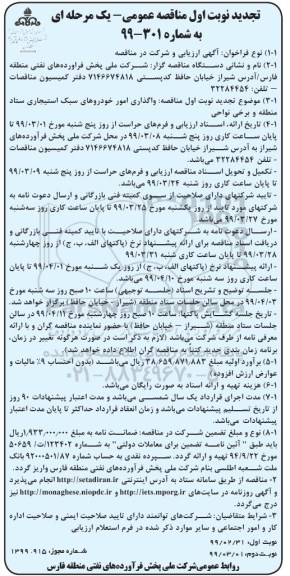 تجدید نوبت اول مناقصه عمومی- یک مرحله ای
به شماره ۳۰۱-۹۹
۱-۱) نوع فراخوان: آگهی ارزیابی و شرکت در مناقصه
۱-۲) نام و نشانی دستگاه مناقصه گزار: شرکت ملی پخش فراورده‌های نفتی منطقه
فارس/آدرس شیراز خیابان حافظ کدپستی ۷۱۴۶۶۷۴۸۱۸ دفتر کمیسیون مناقصات
– تلفن: ۳۲۲۸۴۴۵۴
۱-۳) موضوع تجدید نوبت اول مناقصه: واگذاری امور خودروهای سبک استیجاری ستاد
منطقه و برخی نواحی
۱-۴) تاریخ ارائه اسناد ارزیابی و فرم‌های حراست از روز پنج شنبه مورخ ۹۹/۰۳/۰۱ تا
پایان ساعت کاری روز پنج شنبه ۹۹/۰۳/۰۸ در محل شرکت ملی پخش فرآورده‌های
شیراز به آدرس شیراز خیابان حافظ کدپستی ۷۱۴۶۶۷۴۸۱۸ دفتر کمیسیون مناقصات
- تلفن ۳۲۲۸۴۴۵۴ می‌باشد.
- تکمیل و تحویل اسناد مناقصه ارزیابی و فرم‌های حراست از روز پنج شنبه ۹۹/۰۳/۰۹
تا پایان ساعت کاری روز شنبه ۹۹/۰۳/۲۴ می‌باشد.
- تایید شرکتهای دارای صلاحیت از سوی کمیته فنی بازرگانی و ارسال دعوت نامه به
شرکتهای مورد تایید از روز یکشنبه مورخ ۹۹/۰۳/۲۵ تا پایان ساعت کاری روز سه‌شنبه
مورخ ۹۹/۰۳/۲۷ می‌باشد.
- ارسال دعوت نامه به شرکتهای دارای صلاحیت با تایید کمیته فنی بازرگانی و
دریافت اسناد مناقصه برای ارائه پیشنهاد نرخ (پاکتهای الف، ب، ج) از روز چهارشنبه
۹۹/۰۳/۲۸ تا پایان ساعت کاری شنبه ۹۹/۰۳/۳۱
- ارائه پیشنهاد نرخ (پاکتهای الف، ب، ج) از روز یک شنبه مورخ ۹۹/۰۴/۰۱ تا پایان
ساعت کاری روز سه شنبه مورخ ۹۹/۰۴/۱۰ می‌باشد.
- جلسه توضیح و تشریح اسناد (جلسه توجیهی) ساعت ۱۰ صبح روز سه شنبه مورخ
۹۹/۰۴/۰۳ در محل سالن جلسات ستاد منطقه (شیراز- خیابان حافظ) برگزار خواهد شد.
- تاریخ جلسه گشایش پاکتها: ساعت ۱۰ صبح روز چهارشنبه مورخ ۹۹/۰۴/۱۱ در سالن
جلسات ستاد منطقه (شیراز – خیابان حافظ) با حضور نماینده مناقصه گران و با ارائه
معرفی نامه از طرف شرکت می‌باشد (لازم به ذکر است در صورت هرگونه تغییر در زمان،
برنامه زمان بندی جدید کتبا به مناقصه گران اطلاع داده خواهد شد).
۱-۵) برآورد اولیه مبلغ ۳۸,۶۵۹,۸۷۱,۸۸۳ ریال می‌باشد. (بدون احتساب ۹٪ مالیات و
عوارض ارزش افزوده)
۱-۶) هزینه تهیه و ارائه اسناد به صورت رایگان می‌باشد.
۱-۷) مدت اجرای قرارداد یک سال شمسی می‌باشد و مدت اعتبار پیشنهادات ۹۰ روز
از تاریخ تسلیم پیشنهادات می‌باشد و زمان انعقاد قرارداد حداکثر تا پایان مدت اعتبار
پیشنهادات می‌باشد.
۱-۸) نوع و مبلغ تضمین شرکت در مناقصه: ضمانت نامه به مبلغ ۱,۹۳۳,۰۰۰,۰۰۰ ریال
باید طبق " آئین نامه تضمین برای معاملات دولتی" به شماره ۱۲۳۴۰۲/ت ۵۰۶۵۹
مورخ ۹۴/۹/۲۲ تهیه و ارائه گردد.
ملت شعبه اطلسی بنام شرکت ملی پخش فرآورده‌های نفتی منطقه فارس واریز گردد.
۲- مناقصه از طریق سامانه ستاد به آدرس اینترنتی http://setadiran.ir انجام می‌پذیرد
و آگهی روزنامه در سایت‌های http://iets.mporg.ir و http://monaghese.niopdc.ir نیز
درج می‌گردد.
۳- شرایط متقاضیان: شرکت‌های توانمند دارای تایید صلاحیت ایمنی و صلاحیت اداره
کار و امور اجتماعی و سایر موارد ذکر شده در فرم استعلام ارزیابی
نوبت اول: ۹۹/۰۲/۳۱
نوبت دوم: ۹۹/۰۳/۰۱
شماره مجوز: ۱۳۹۹.۹۱۵
روابط عمومی شرکت ملی پخش فرآورده‌های نفتی منطقه فارس